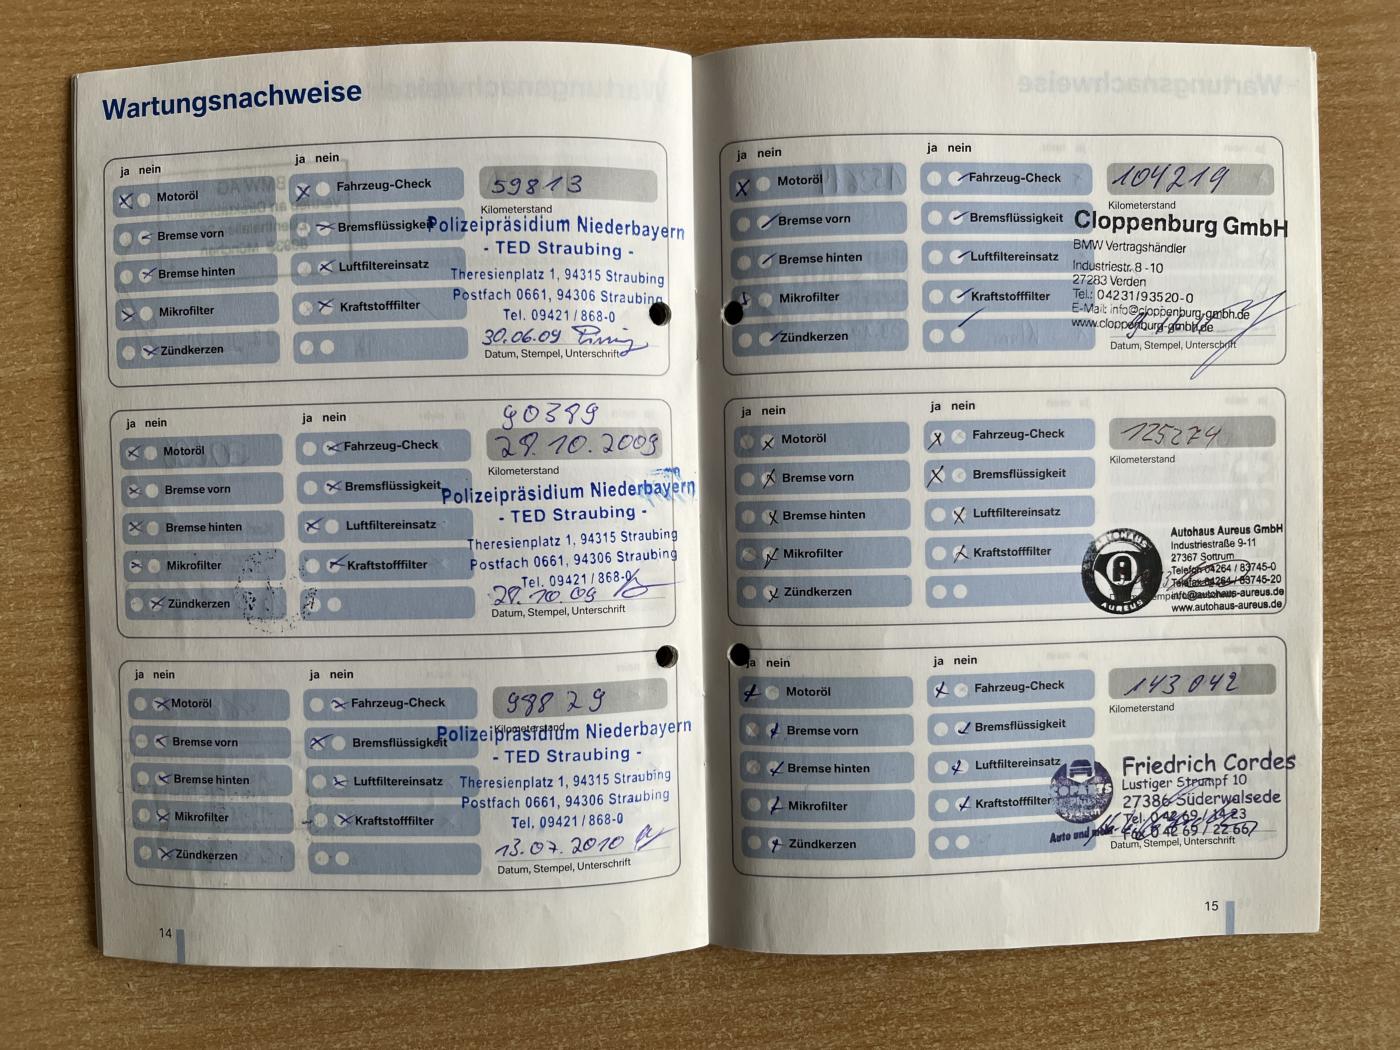 Wartungsnachweise
ja nein
ja nein
Motoröl
Bremse vorn
Bremse hinten
Mikrofilter
Zündkerzen
Fahrzeug-Check
Bremsflüssigkeit
Luftfiltereinsatz
Kraftstofffilter
59813
Kilometerstand
Polizeipräsidium Niederbayern
- TED Straubing -
Theresienplatz 1, 94315 Straubing
Postfach 0661, 94306 Straubing
Tel. 09421/868-0
30.06.09
Datum, Stempel, Unterschrift
ja nein
ja nein
Motoröl
Bremse vorn
Bremse hinten
Mikrofilter
Zündkerzen
Fahrzeug-Check
Bremsflüssigkeit
Luftfiltereinsatz
Kraftstofffilter
90389
29.10.2009
Kilometerstand
Polizeipräsidium Niederbayern
- TED Straubing -
Theresienplatz 1, 94315 Straubing
Postfach 0661, 94306 Straubing
Tel. 09421/868-0
29.10.09
Datum, Stempel, Unterschrift
ja nein
ja nein
Motoröl
Bremse vorn
Bremse hinten
Mikrofilter
Zündkerzen
Fahrzeug-Check
Bremsflüssigkeit
Luftfiltereinsatz
Kraftstofffilter
98829
Kilometerstand
Polizeipräsidium Niederbayern
- TED Straubing -
Theresienplatz 1, 94315 Straubing
Postfach 0661, 94306 Straubing
Tel. 09421/868-0
13.07.2010
Datum, Stempel, Unterschrift
14
ja nein
ja nein
Motoröl
Bremse vorn
Bremse hinten
Mikrofilter
Zündkerzen
Fahrzeug-Check
Bremsflüssigkeit
Luftfiltereinsatz
Kraftstofffilter
104219
Kilometerstand
Cloppenburg GmbH
BMW Vertragshändler
Industriestr. 8 -10
27283 Verden
Tel.: 04231/93520-0
E-Mail: info@cloppenburg-gmbh.de
www.cloppenburg-gmbh.de
Datum, Stempel, Unterschrift
ja nein
ja nein
Motoröl
Bremse vorn
Bremse hinten
Mikrofilter
Zündkerzen
Fahrzeug-Check
Bremsflüssigkeit
Luftfiltereinsatz
Kraftstofffilter
125274
Kilometerstand
AUTOHAUS
A
AUREUS
Autohaus Aureus GmbH
Industriestraße 9-11
27367 Sottrum
Telefon 04264 / 83745-0
Telefax 04264 / 83745-20
info@autohaus-aureus.de
www.autohaus-aureus.de
ja nein
ja nein
Motoröl
Bremse vorn
Bremse hinten
Mikrofilter
Zündkerzen
Fahrzeug-Check
Bremsflüssigkeit
Luftfiltereinsatz
Kraftstofffilter
143042
Kilometerstand
Friedrich Cordes
Lustiger Strumpf 10
27386 Süderwalsede
Auto und
Fax 0 42 69 / 22 66
Datum, Stempel, Unterschrift
15